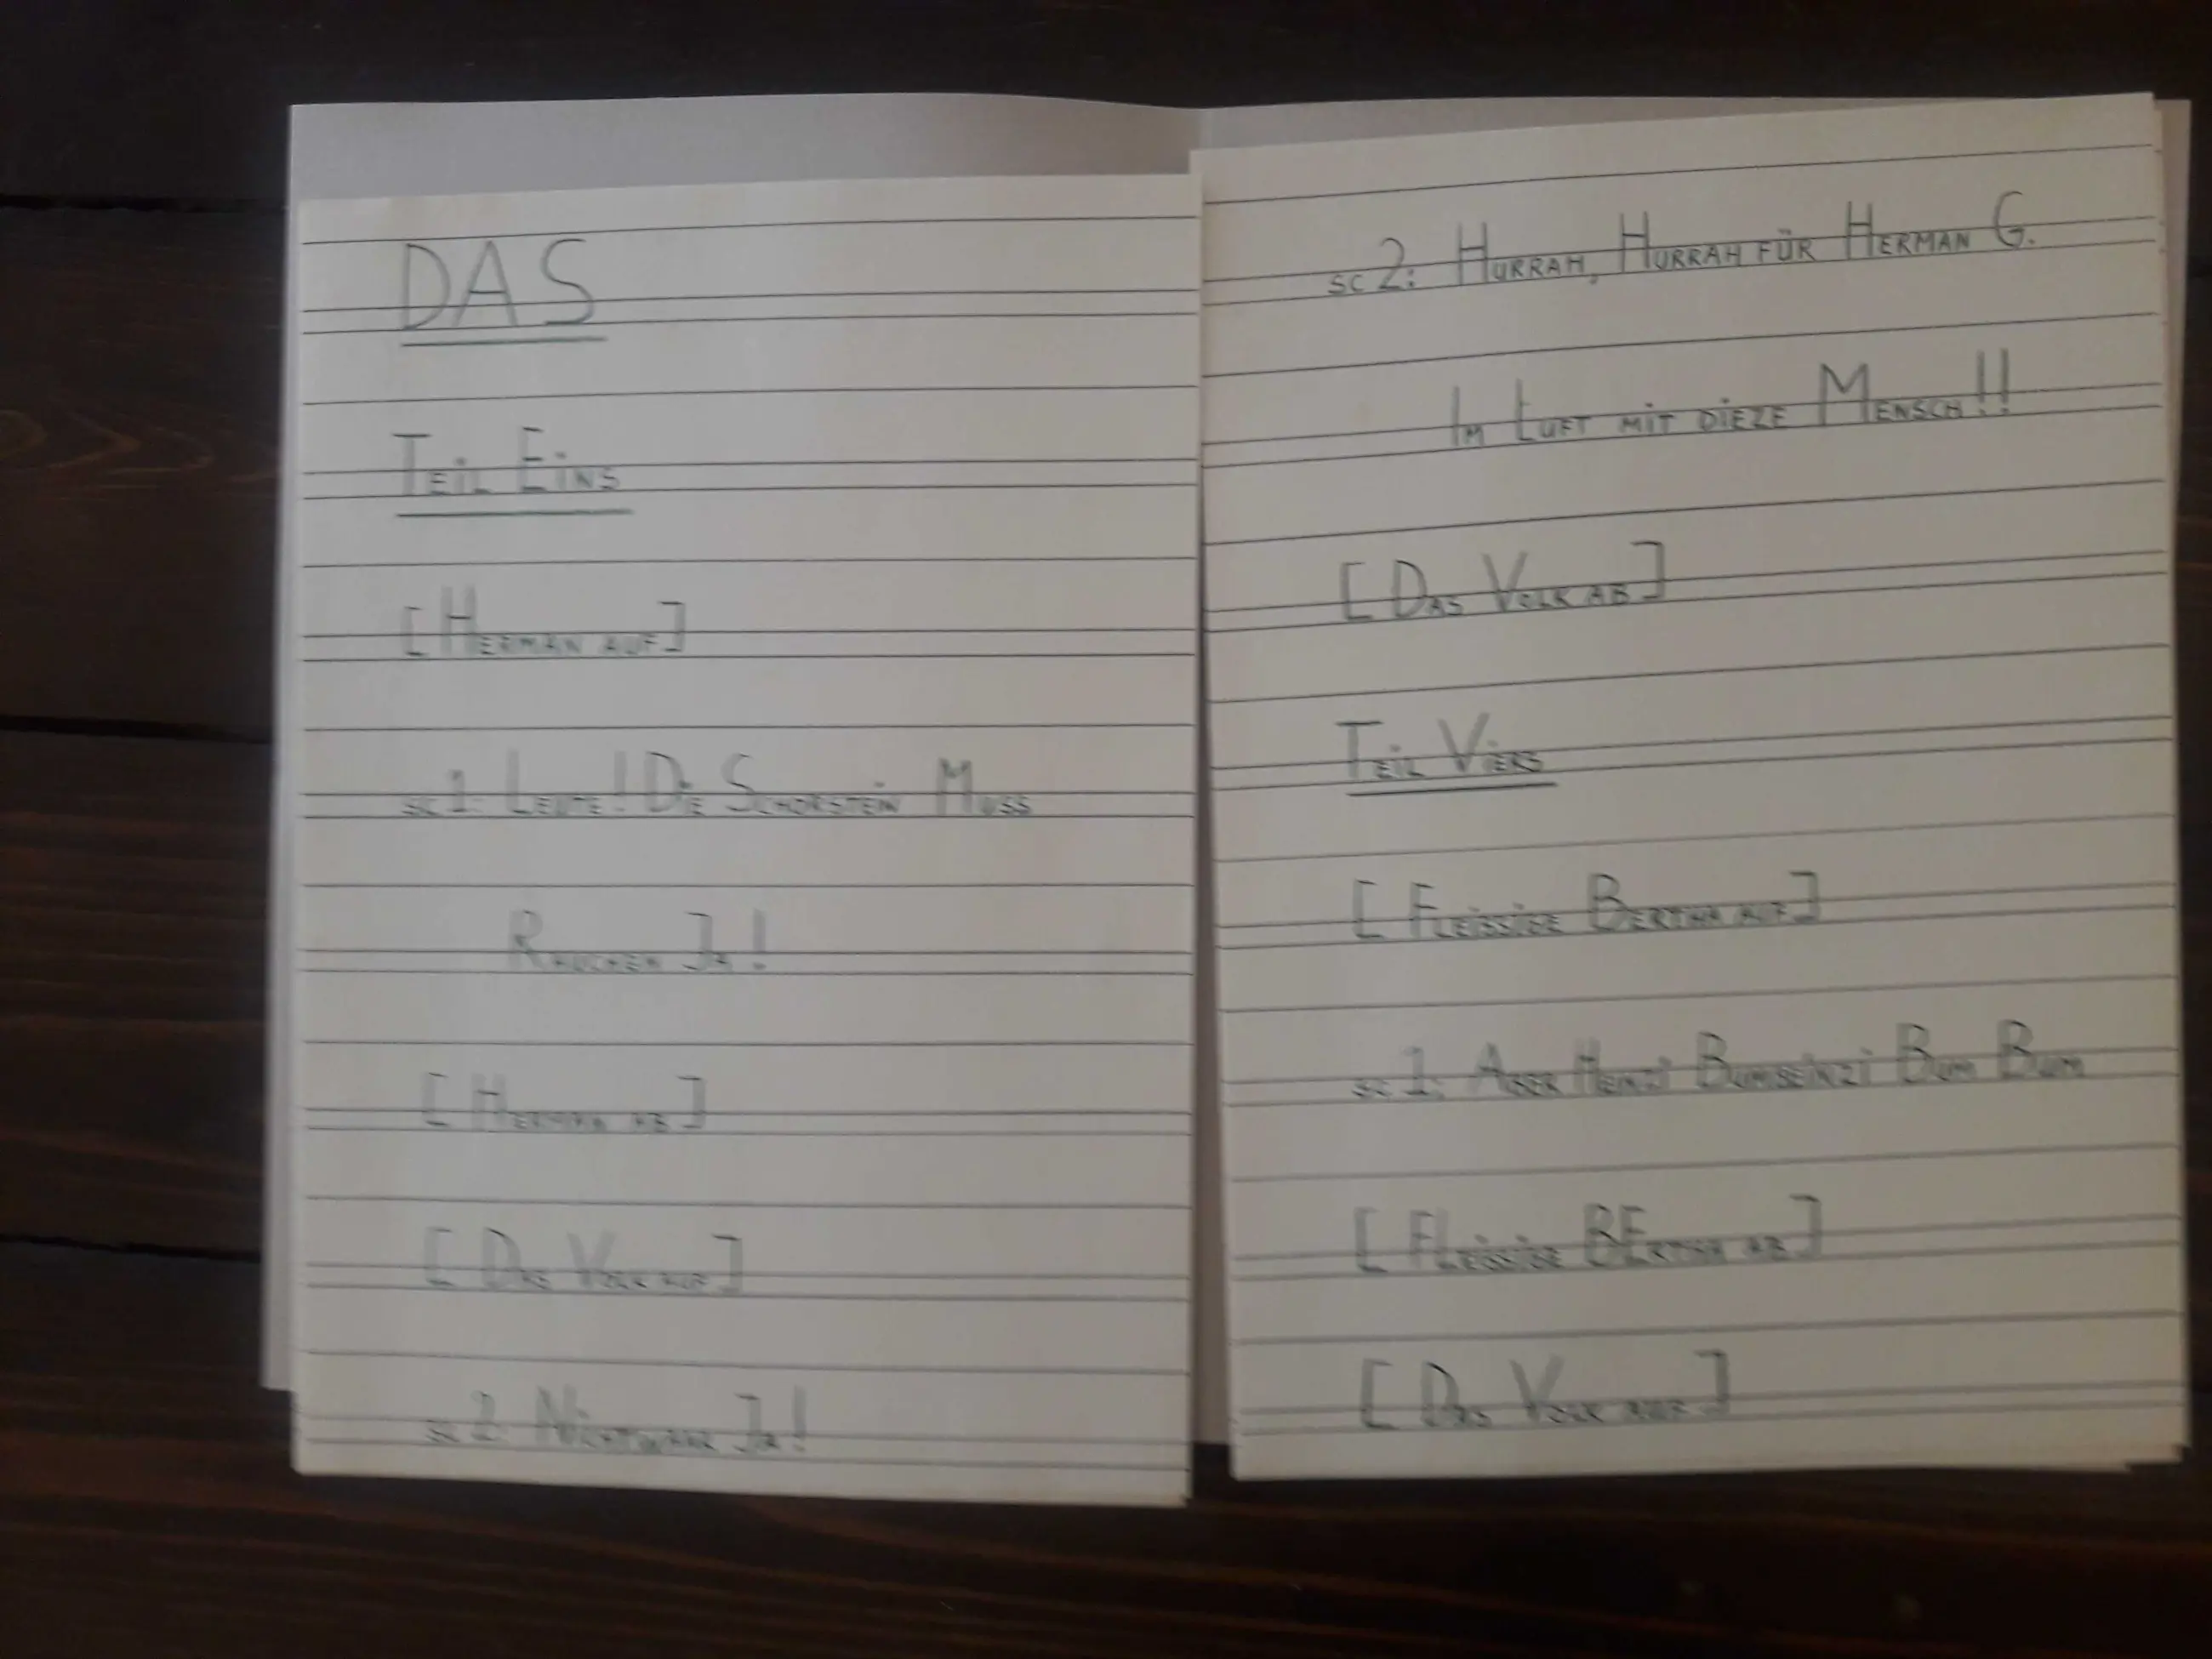 DAS
TEIL EINS
[HERMAN AUF]
SC 1: LEUTE! DIE SCHORSTEIN MUSS
RAUCHEN JA!
[HERMAN AB]
[DAS VOLK AUF]
SC 2: NICHTWAHR JA!
SC 2: HURRAH, HURRAH FÜR HERMAN G.
IM LUFT MIT DIEZE MENSCH!!
[DAS VOLK AB]
TEIL VIERS
[FLEISSIGE BERTHA AUF]
SC 1: ABER HEINZI BUMBEINZI BUM BUM
[FLEISSIGE BERTHA AB]
[DAS VOLK AUF]